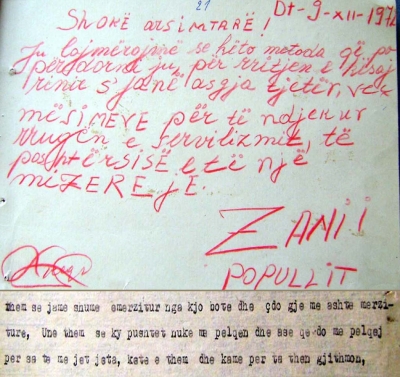 21
Dt-9-XII-197
Shokë arsimtarë!
Ju lajmërojmë se këto metoda që po
përdorni ju, për rritjen e kësaj
rinie s'janë asgja tjetër, veç
mësimeve për të ndjekur
rrugën e servilizmit, të
poshtërsisë e të një
mizereje.
ZANI i
POPULLIT
them se jame shume emerzitur nga kjo bote dhe çdo gje me ashte merzi-
ture, Une them se ky pushtet nuke me pelqen dhe ase qe do me pelqej
per sa te me jet jeta, kete e them dhe kame per ta then gjithmon,